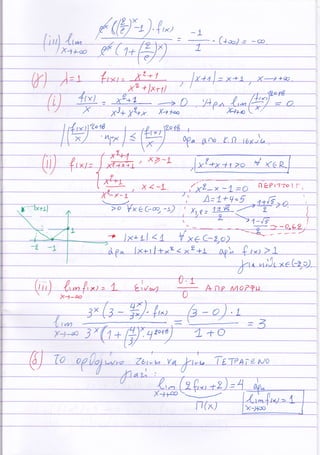 (iii) lim x→+∞ e^x((2/e)^x - 1)·f(x) / e^x(1+(2/e)^x) = -1/1 · (+∞) = -∞.
(γ) λ=1 f(x) = x²+1 / x²+|x+1| , |x+1| = x+1 , x→+∞.
(i) f(x)/x = x²+1 / x³+x²+x → 0 x→+∞ . Άρα lim (f(x)/x)^2018 = 0.
|(f(x)/x)^2018 · ημx| ≤ (f(x)/x)^2018 άρα από Κ.Π
(ii) f(x) = { x²+1 / x²+x+1 , x ≥ -1 x²+x+1>0 ∀ x∈ℝ
x²+1 / x²-x-1 , x < -1. x²-x-1=0 ΠΕΡΙΤΤΟ!!
>0 ∀x∈(-∞,-1) Δ=1+4=5
|x+1| x₁,₂ = 1±√5 / 2 1+√5 / 2 >0
1 1-√5 / 2
-2 -1 |x+1| < 1 ∀ x∈(-2,0)
άρα |x+1|+x² < x²+1 άρα f(x) > 1
για κάθε x∈(-2,0)
(iii) lim f(x) = 1 x→-∞ είναι 0·1 / 0 ΑΠΡ ΜΟΡΦΗ
lim x→-∞ 3^x(3 - 4^x/3^x)·f(x) / 3^x(1+(4/3)^x · 4^2018) = (3-0)·1 / 1+0 = 3
(δ) Το ορθογώνιο τείνει να γίνει ΤΕΤΡΑΓΩΝΟ
γιατί:
lim x→+∞ (2f(x)+2) = 4 άρα
Π(x) lim f(x) = 1 x→+∞